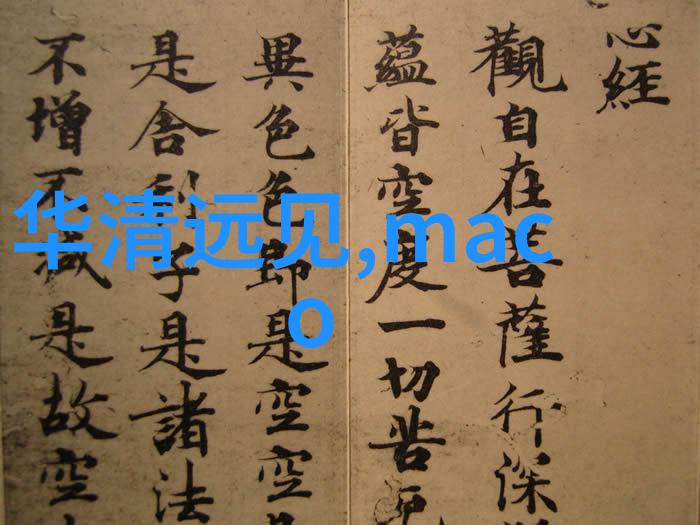 心經
觀自在菩薩行深
蘊皆空度一切苦厄
異色色即是空空
是舍利子是諸法
不增不減是故空
华清远见,mac
o